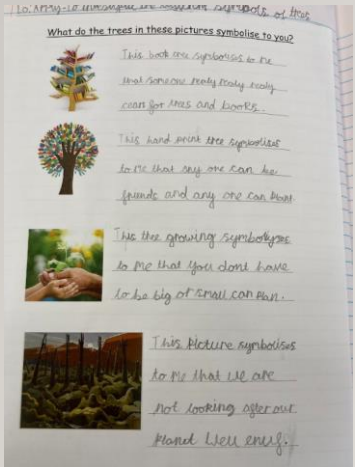 What do the trees in these pictures symbolise to you?
This book tree symbolises to me
that someone realy realy realy
cears for trees and books.
This hand print tree symbolises
to me that any one can be
friends and any one can plant.
This tree growing symbolyses
to me that you dont have
to be big or small can plan.
This picture symbolises
to me that we are
not looking after our
planet well enuf.